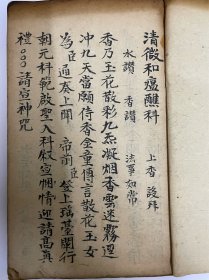 清微和瘟醮科
上香 設拜
水讚 香讚 法事如常
香乃玉花散彩九炁凝烟香雲迷霧逕
冲九天當願侍香金童傳言散花玉女
為臣通奏上聞 帝前臣發上瑤臺闡行
朝元科範啟聖入科啟宣悃情迎請高真
禮○○○請召神咒